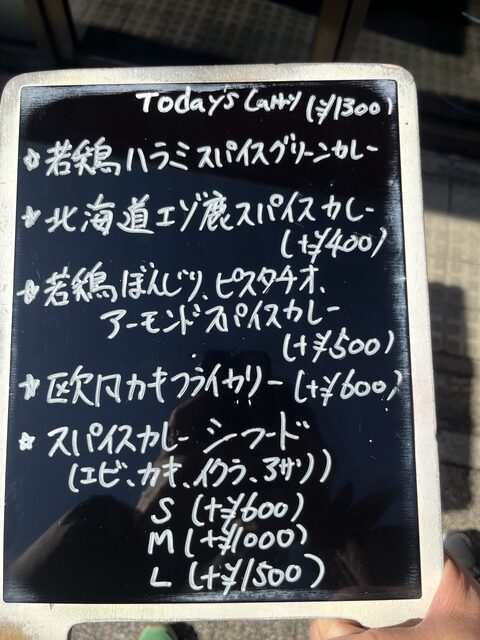 Today's Curry (¥1300)
☆若鶏ハラミスパイスグリーンカレー
☆北海道エゾ鹿スパイスカレー
(+¥400)
☆若鶏ぼんじり、ピスタチオ、
アーモンドスパイスカレー
(+¥500)
☆欧风カキフライカリー(+¥600)
☆スパイスカレーシーフード
(エビ、カキ、イクラ、ヨサリ)
S (+¥600)
M (+¥1000)
L (+¥1500)